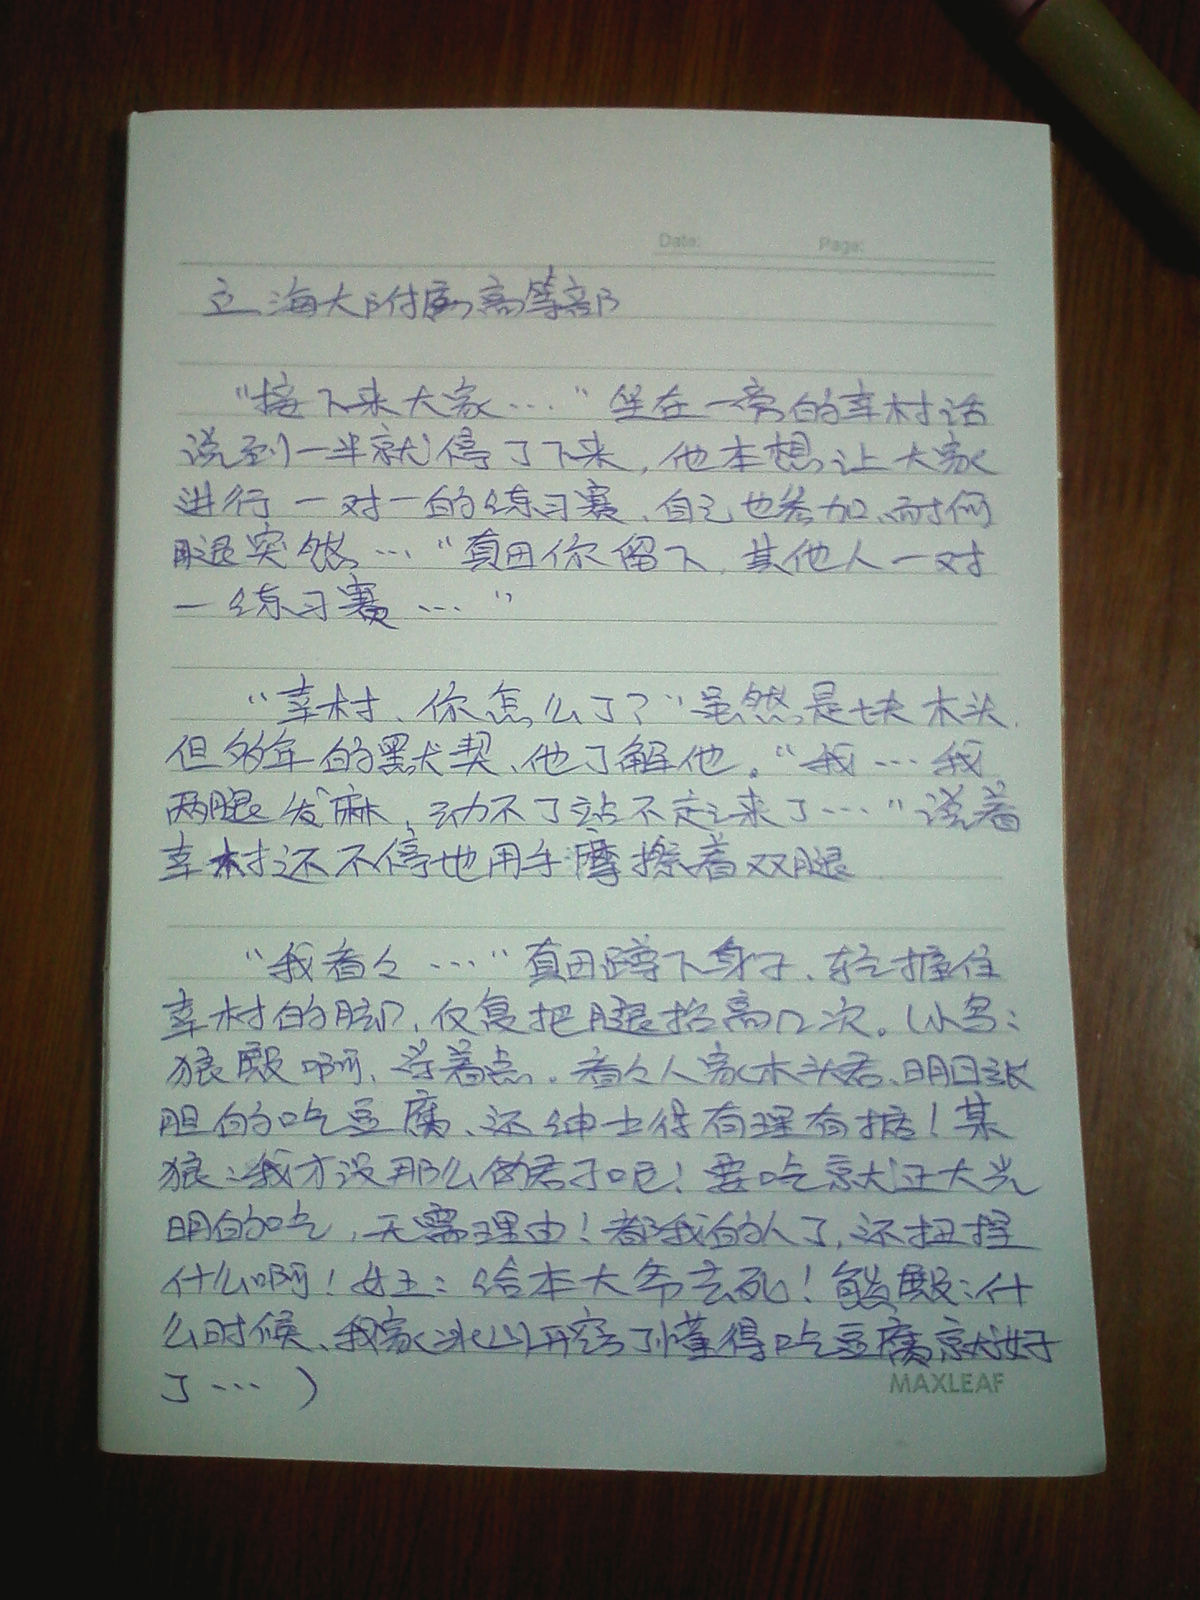 Date: Page:
立海大附属高等部
“接下来大家…”坐在一旁的幸村话
说到一半就停了下来,他本想让大家
进行一对一的练习赛、自己也参加、耐何
腿突然…“真田你留下,其他人一对
一练习赛…”
“幸村、你怎么了?”虽然是块木头,
但多年的默契、他了解他。“我…我,
两腿发麻,动不了站不起来了…”说着
幸村还不停地用手摩擦着双腿
“我看々…”真田蹲下身子、轻握住
幸村的脚,反复把腿抬高几次。(小鸟:
狼殿啊、学着点。看々人家木头君、明目张
胆的吃豆腐、还绅士得有理有据!某
狼:我才没那么伪君子呢!要吃就正大光
明的吃,无需理由!都我的人了,还扭捏
什么啊!女王:给本大爷去死!熊殿:什
么时候、我家冰山开窍了懂得吃豆腐就好
了…)
MAXLEAF